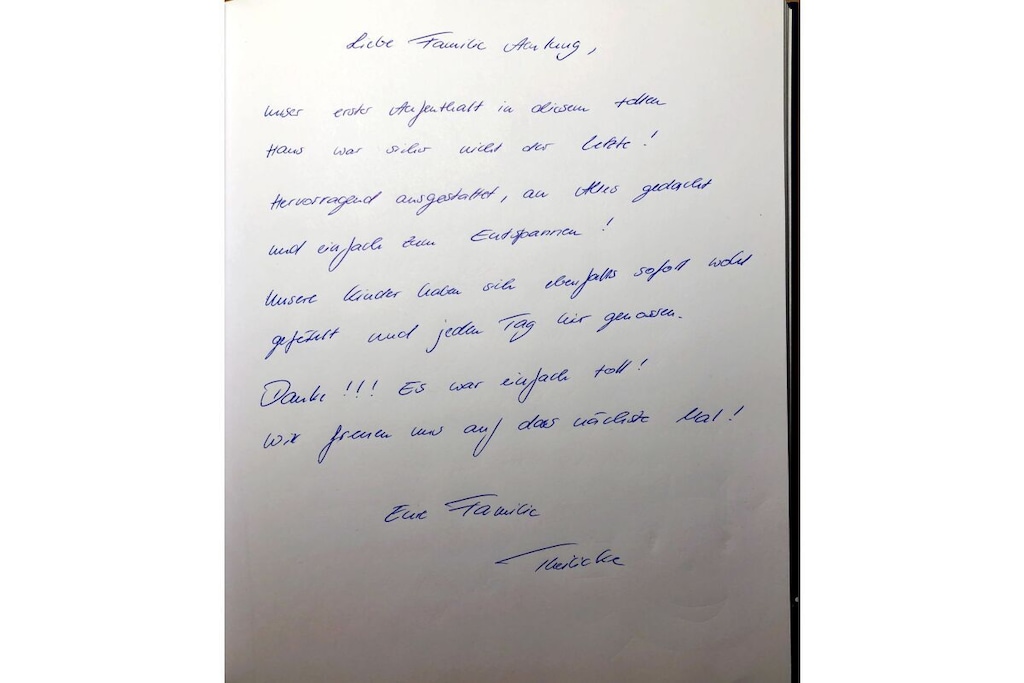 Liebe Familie
unser erster Aufenthalt in diesem tollen
Haus war sicher nicht der letzte!
Hervorragend ausgestattet, an Alles gedacht
und einfach zum Entspannen!
Unsere Kinder haben sich ebenfalls sofort wohl
gefühlt und jeden Tag hier genossen.
Danke!!! Es war einfach toll!
Wir freuen uns auf das nächste Mal!
Eure Familie